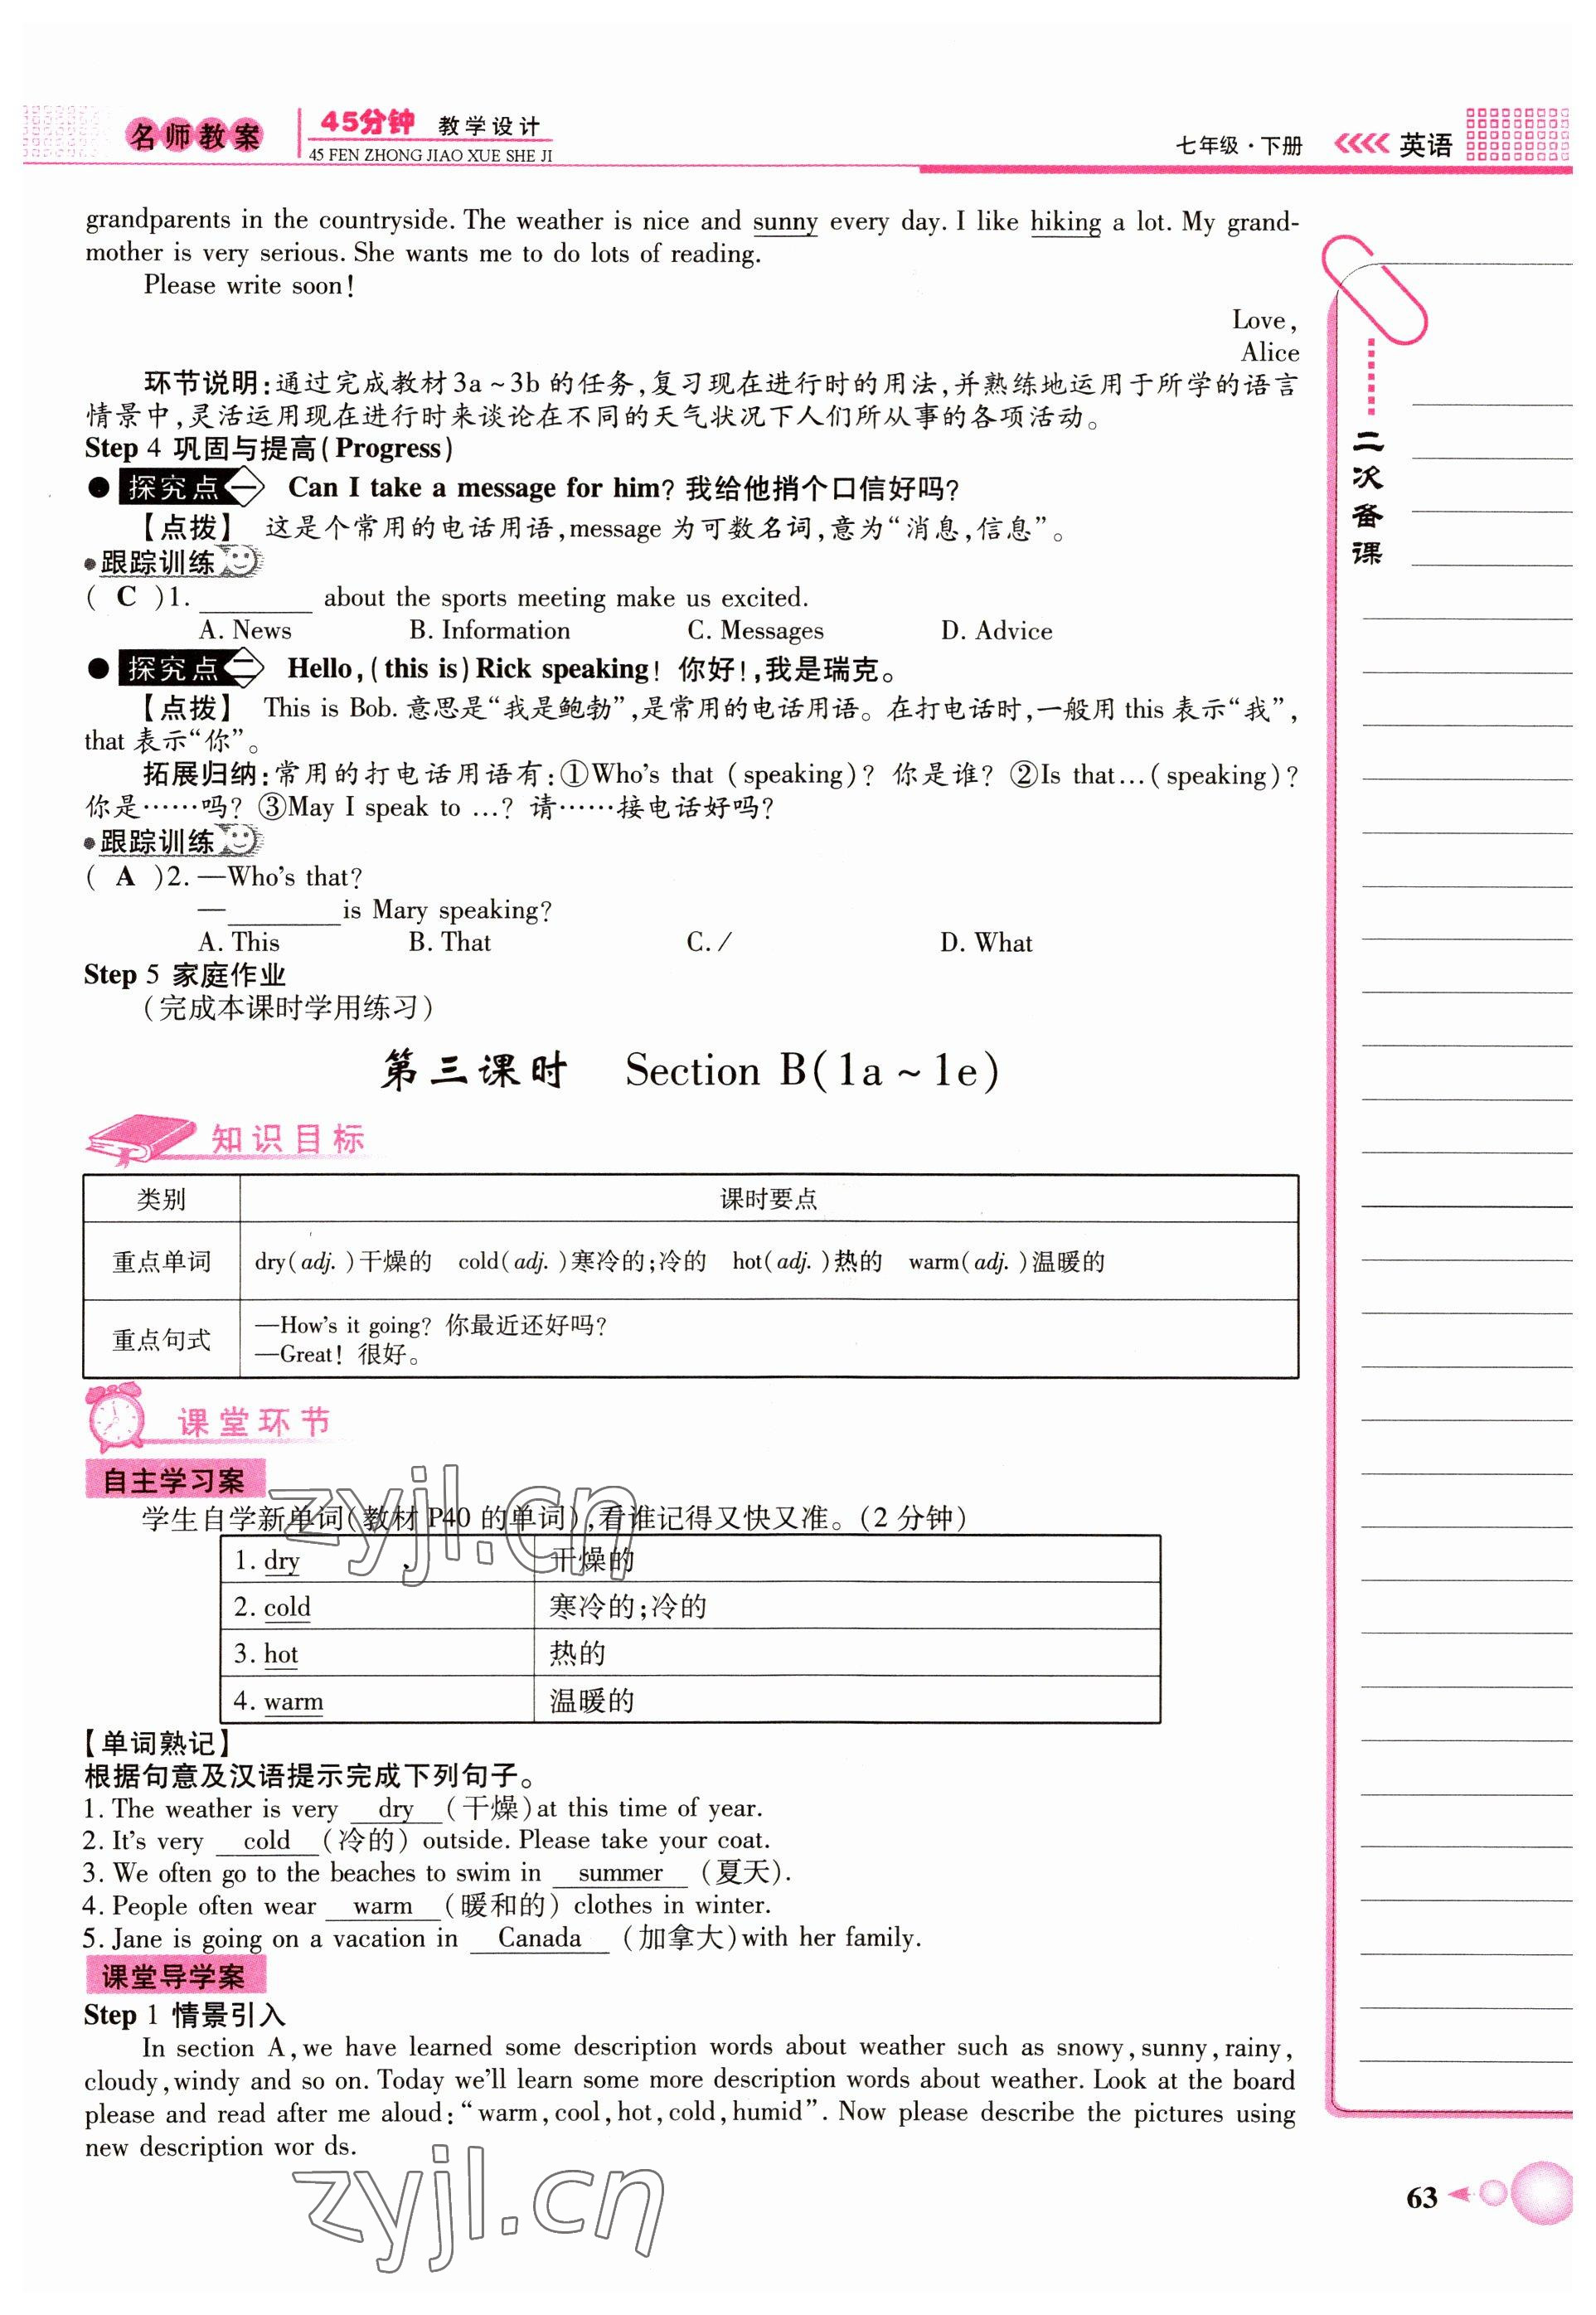 名师教案 45分钟 教学设计
45 FEN ZHONG JIAO XUE SHE JI
七年级·下册 英语
grandparents in the countryside. The weather is nice and sunny every day. I like hiking a lot. My grand-
mother is very serious. She wants me to do lots of reading.
Please write soon!
Love,
Alice
环节说明:通过完成教材3a~3b的任务,复习现在进行时的用法,并熟练地运用于所学的语言
情景中,灵活运用现在进行时来谈论在不同的天气状况下人们所从事的各项活动。
Step 4 巩固与提高(Progress)
●探究点一 Can I take a message for him? 我给他捎个口信好吗?
【点拨】 这是个常用的电话用语,message 为可数名词,意为“消息,信息”。
●跟踪训练
( C )1. ________ about the sports meeting make us excited.
A. News B. Information C. Messages D. Advice
●探究点二 Hello,(this is)Rick speaking! 你好!,我是瑞克。
【点拨】 This is Bob. 意思是“我是鲍勃”,是常用的电话用语。在打电话时,一般用 this 表示“我”,
that 表示“你”。
拓展归纳:常用的打电话用语有:①Who's that (speaking)? 你是谁? ②Is that…(speaking)?
你是……吗? ③May I speak to …? 请……接电话好吗?
●跟踪训练
( A )2. —Who's that?
—________is Mary speaking?
A. This B. That C. / D. What
Step 5 家庭作业
(完成本课时学用练习)
第三课时 Section B(1a~1e)
知识目标
类别 课时要点
重点单词 dry(adj.)干燥的 cold(adj.)寒冷的;冷的 hot(adj.)热的 warm(adj.)温暖的
重点句式 —How's it going? 你最近还好吗?
—Great! 很好。
课堂环节
自主学习案
学生自学新单词(教材 P40 的单词),看谁记得又快又准。(2 分钟)
1. dry 干燥的
2. cold 寒冷的;冷的
3. hot 热的
4. warm 温暖的
【单词熟记】
根据句意及汉语提示完成下列句子。
1. The weather is very dry (干燥)at this time of year.
2. It's very cold (冷的) outside. Please take your coat.
3. We often go to the beaches to swim in summer (夏天).
4. People often wear warm (暖和的) clothes in winter.
5. Jane is going on a vacation in Canada (加拿大)with her family.
课堂导学案
Step 1 情景引入
In section A,we have learned some description words about weather such as snowy,sunny,rainy,
cloudy,windy and so on. Today we'll learn some more description words about weather. Look at the board
please and read after me aloud:“warm,cool,hot,cold,humid”. Now please describe the pictures using
new description wor ds.
二次备课
63
zyjl.cn
zyjl.cn